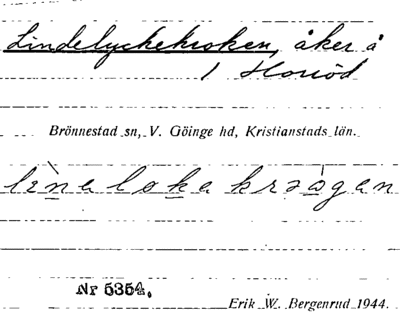 Lindelyckekroken, åker å
1 Horröd
Brönnestad sn, V. Göinge hd, Kristianstads län.
Nr 5354.
Erik W. Bergenrud 1944.